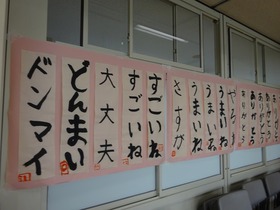 ありがとう
ありがとう
うまいね
うまいね
うまいね
さすが
すごいね
すごいね
大丈夫
どんまい
ドンマイ